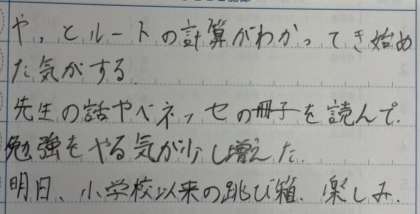 やっとルートの計算がわかってき始め
た気がする
先生の話やベネッセの冊子を読んで.
勉強をやる気が少し増えた.
明日、小学校以来の跳び箱. 楽しみ.